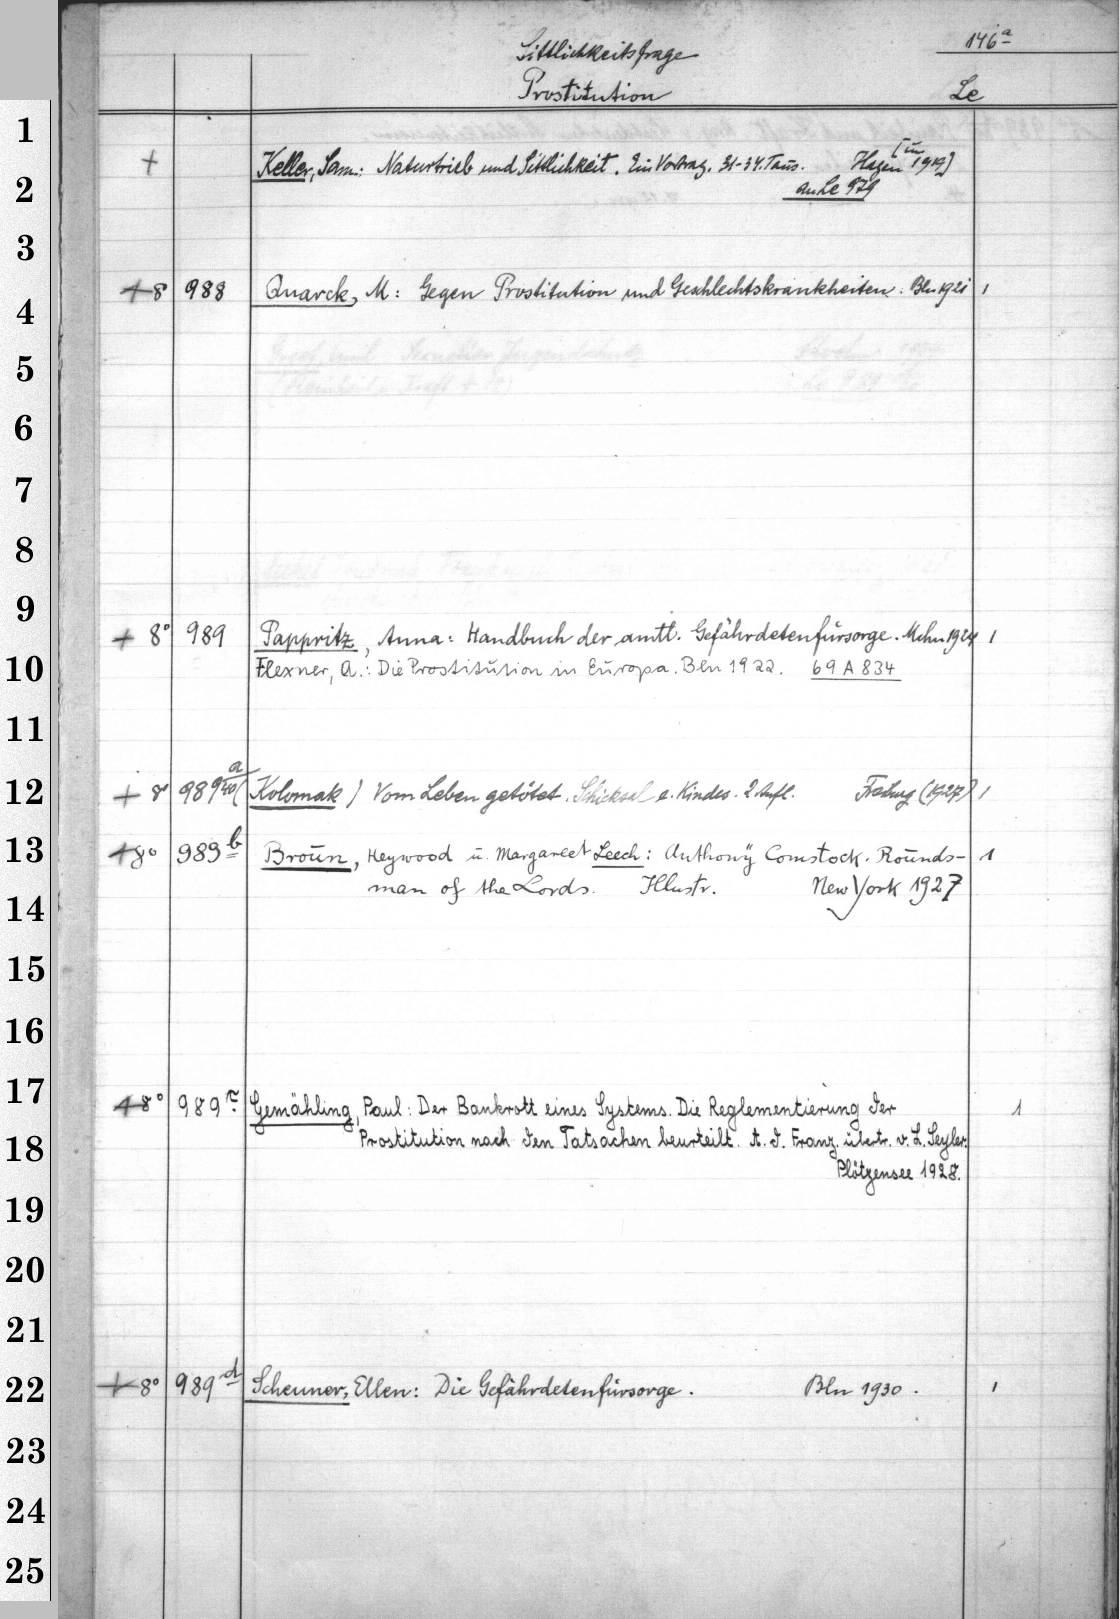 Sittlichkeitsfrage 146a
Prostitution Le
1
+ Keller, Sam.: Naturtrieb und Sittlichkeit. Ein Vortrag. 31-34. Taus. Hagen 1919]
2 an Le 979
3
+ 8 988 Quarck, M: Gegen Prostitution und Geschlechtskrankheiten. Bln 1921 1
4
5
6
7
8
9
+ 8° 989 Pappritz, Anna: Handbuch der amtl. Gefährdetenfürsorge. Mchn 1924 1
10 Flexner, A.: Die Prostitution in Europa. Bln 1922. 69 A 834
11
12 + 8° 989a (Kolomak) Vom Leben getötet. Schicksal e. Kindes. 2. Aufl. Freiburg (1927) 1
13 + 8° 989b Broun, Heywood u. Margareet Leech: Anthony Comstock. Rounds-
man of the Lords. Illustr. New York 1927
14
15
16
17
+ 8° 989c Gemähling, Paul: Der Bankrott eines Systems. Die Reglementierung der 1
18 Prostitution nach den Tatsachen beurteilt. A. d. Franz. übertr. v. L. Seyler.
Plötzensee 1928.
19
20
21
22 + 8° 989d Scheuner, Ellen: Die Gefährdetenfürsorge. Bln 1930. 1
23
24
25